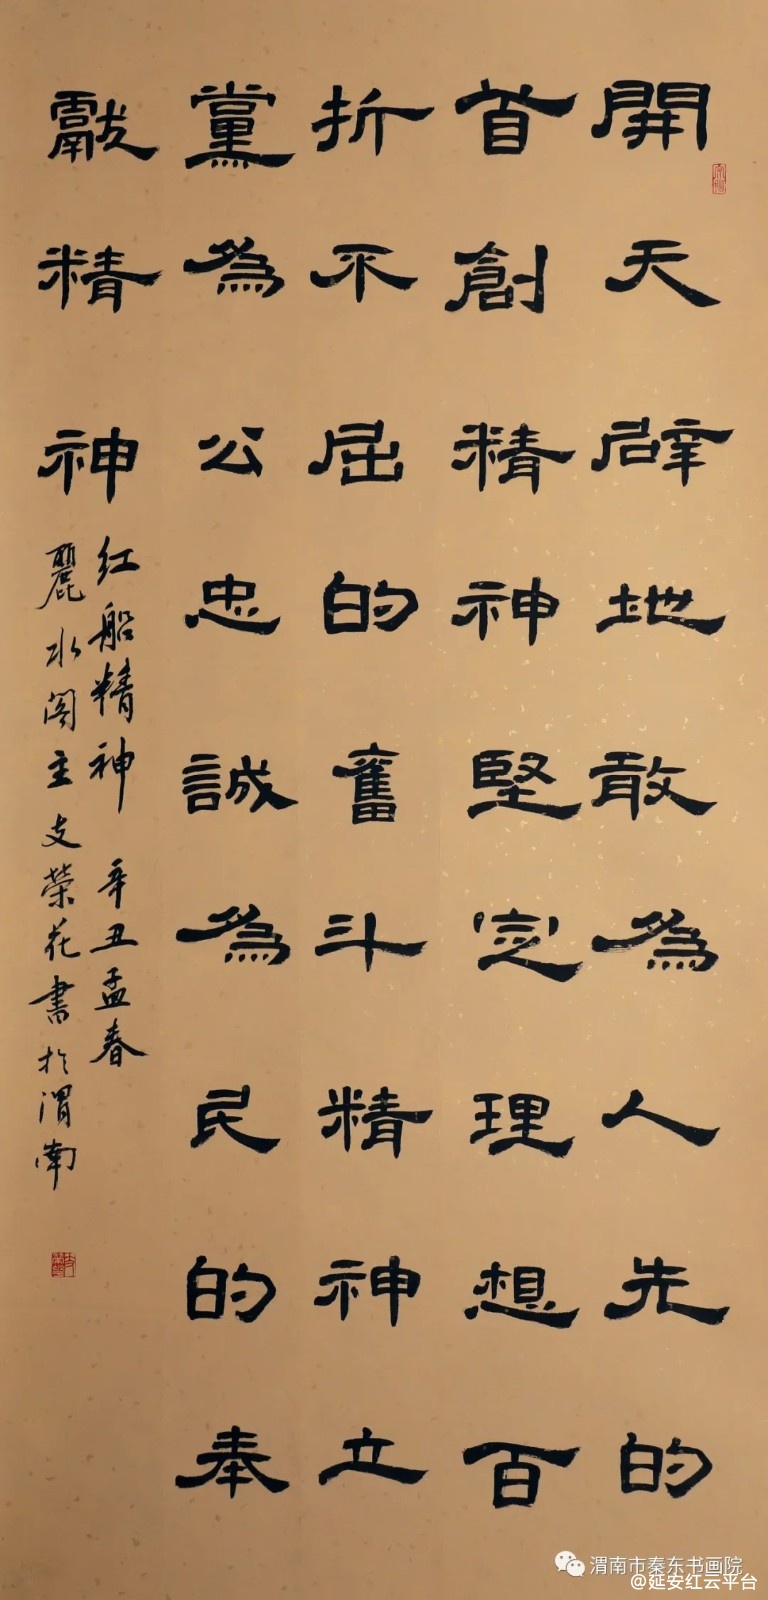 開天辟地敢為人先的
首創精神堅定理想百
折不屈的奮斗精神立
黨為公忠誠為民的奉
獻精神
红船精神 辛丑孟春
麗水阁主支榮花書於渭南
渭南市秦东书画院
@延安红云平台